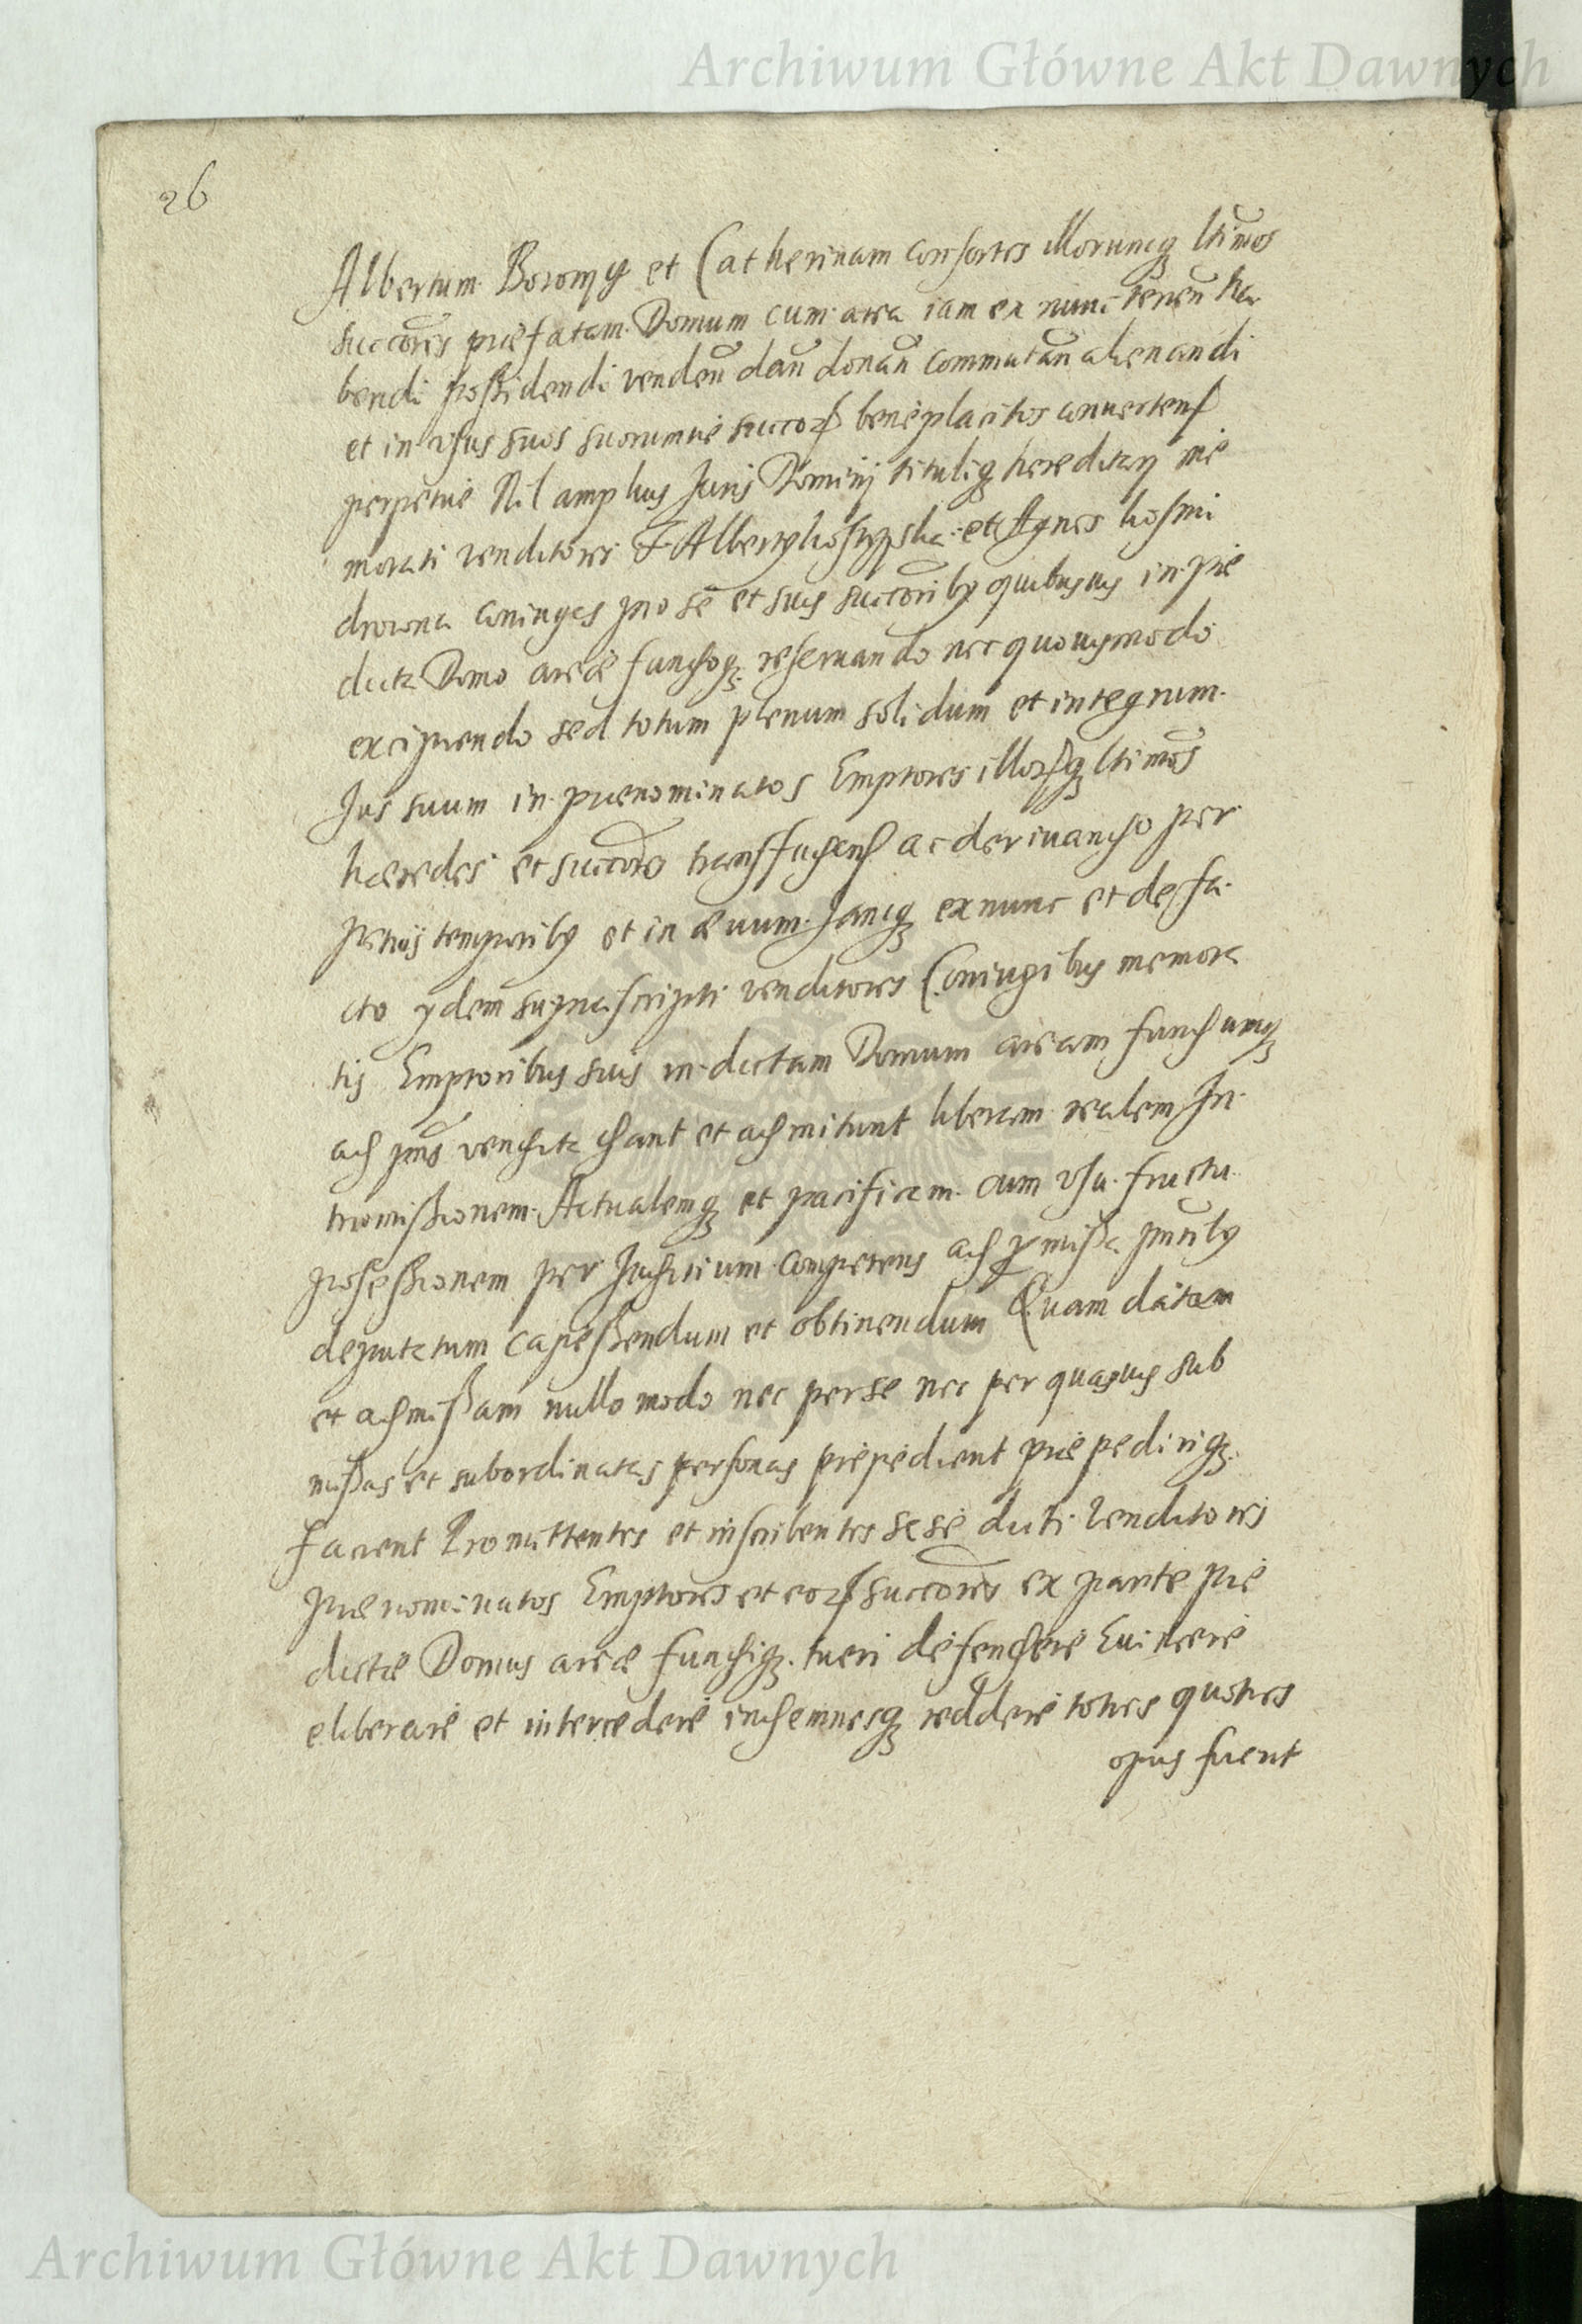 Archiwum Główne Akt Dawnych
26
Albertum Boromy et Catherinam consortes illorumq ltimos
succores præfatam Domum cum area iam ex nunc tenen̄ ha
bendi possidendi venden̄ dan̄ donan̄ commutan̄ alienandi
et in vsus suos suorumue succor beneplacitos conuerten
perpetue Nil amplius Juris Dominij tituliq hereditarij me
morati venditores et Agnes
coniuges pro se et suis successoribus quibusuis in præ
dicta Domo areæ fundoq reseruando nec quouismodo
excipiendo sed totum plenum solidum et integrum
Jus suum in prænominatos Emptores illorq ltimos
hæredes et succores transfundend ac deriuando per
petuis temporibus et in æuum Jamq ex nunc et de fa
cto ydem supra scripti venditores Coniugibus memora
tis Emptoribus suis in dictam Domum aream fundumq
ad pns vendita dant et admitunt liberam realem In
tromissionem Actualemq et pacificam cum vsu fructu
possessionem per Judicium competens ad pmissa pntibus
deputatum capessendum et obtinendum Quam datam
et admissam nullo modo nec per se nec per quasuis sub
missas et subordinatas personas præpedient præpediriq
facient Promittentes et inscribentes sese dicti Venditores
prænominatos Emptores et eor succores ex parte præ
dictæ Domus areæ fundiq tueri defendere Euincere
eliberare et intercedere indemnesq reddere toties quoties
opus fuerit
Archiwum Główne Akt Dawnych